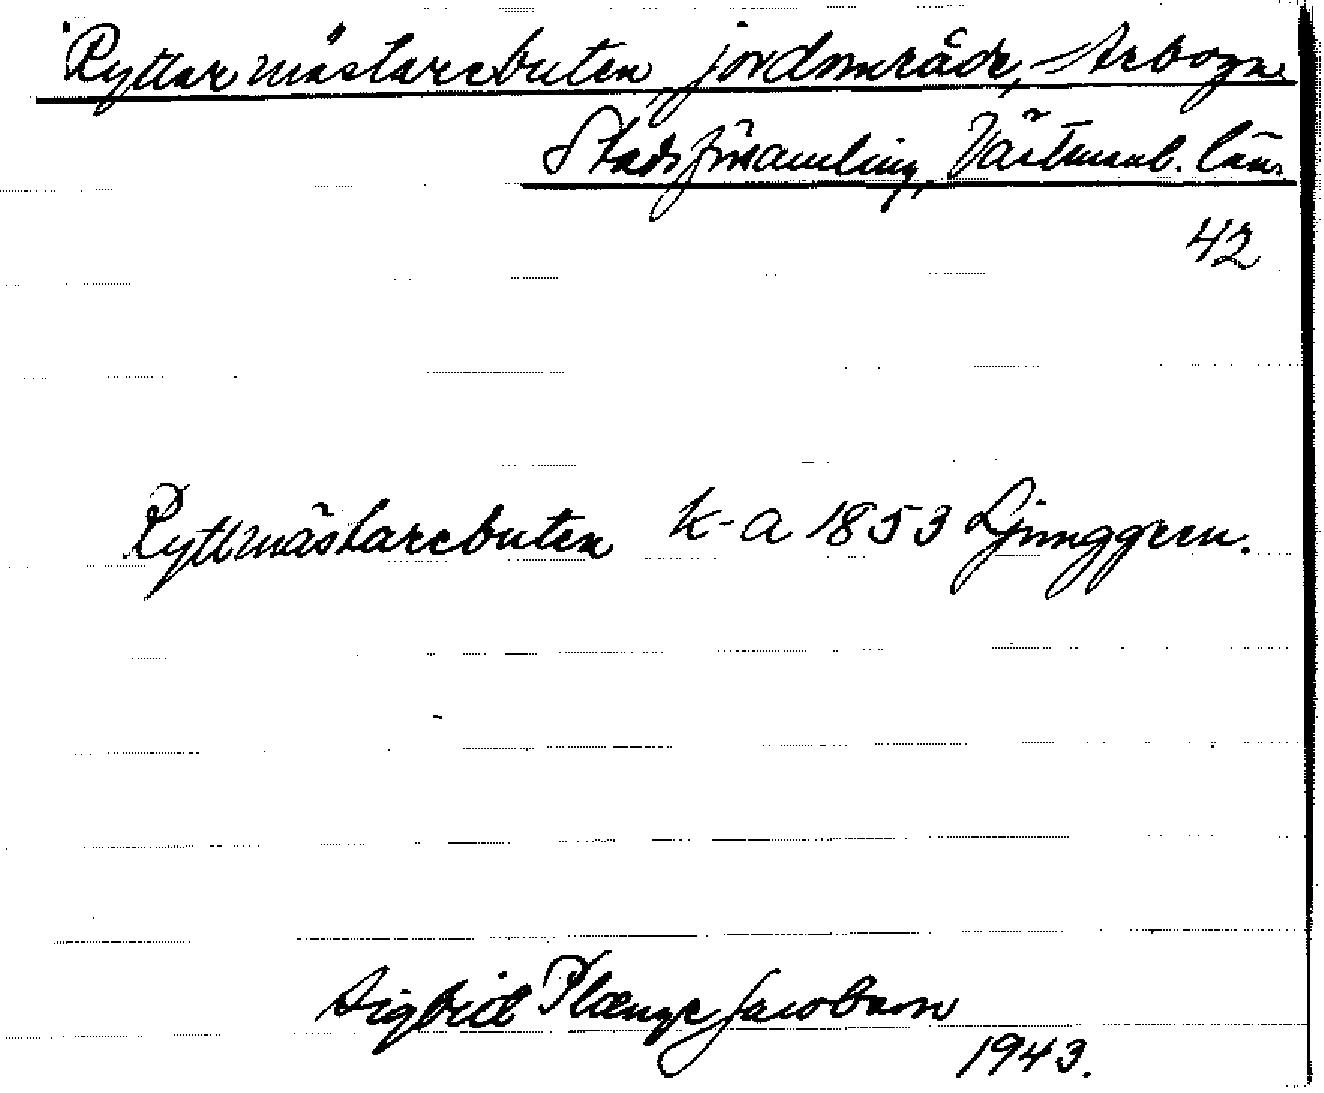 Ryttarmästarebuten, jordområde, Arboga
Stadsförsamling, Västmanl. län.
42
Ryttmästarebuten k-a 1853 Ljunggren.
Sigbrid Plænge Jacobson
1943.